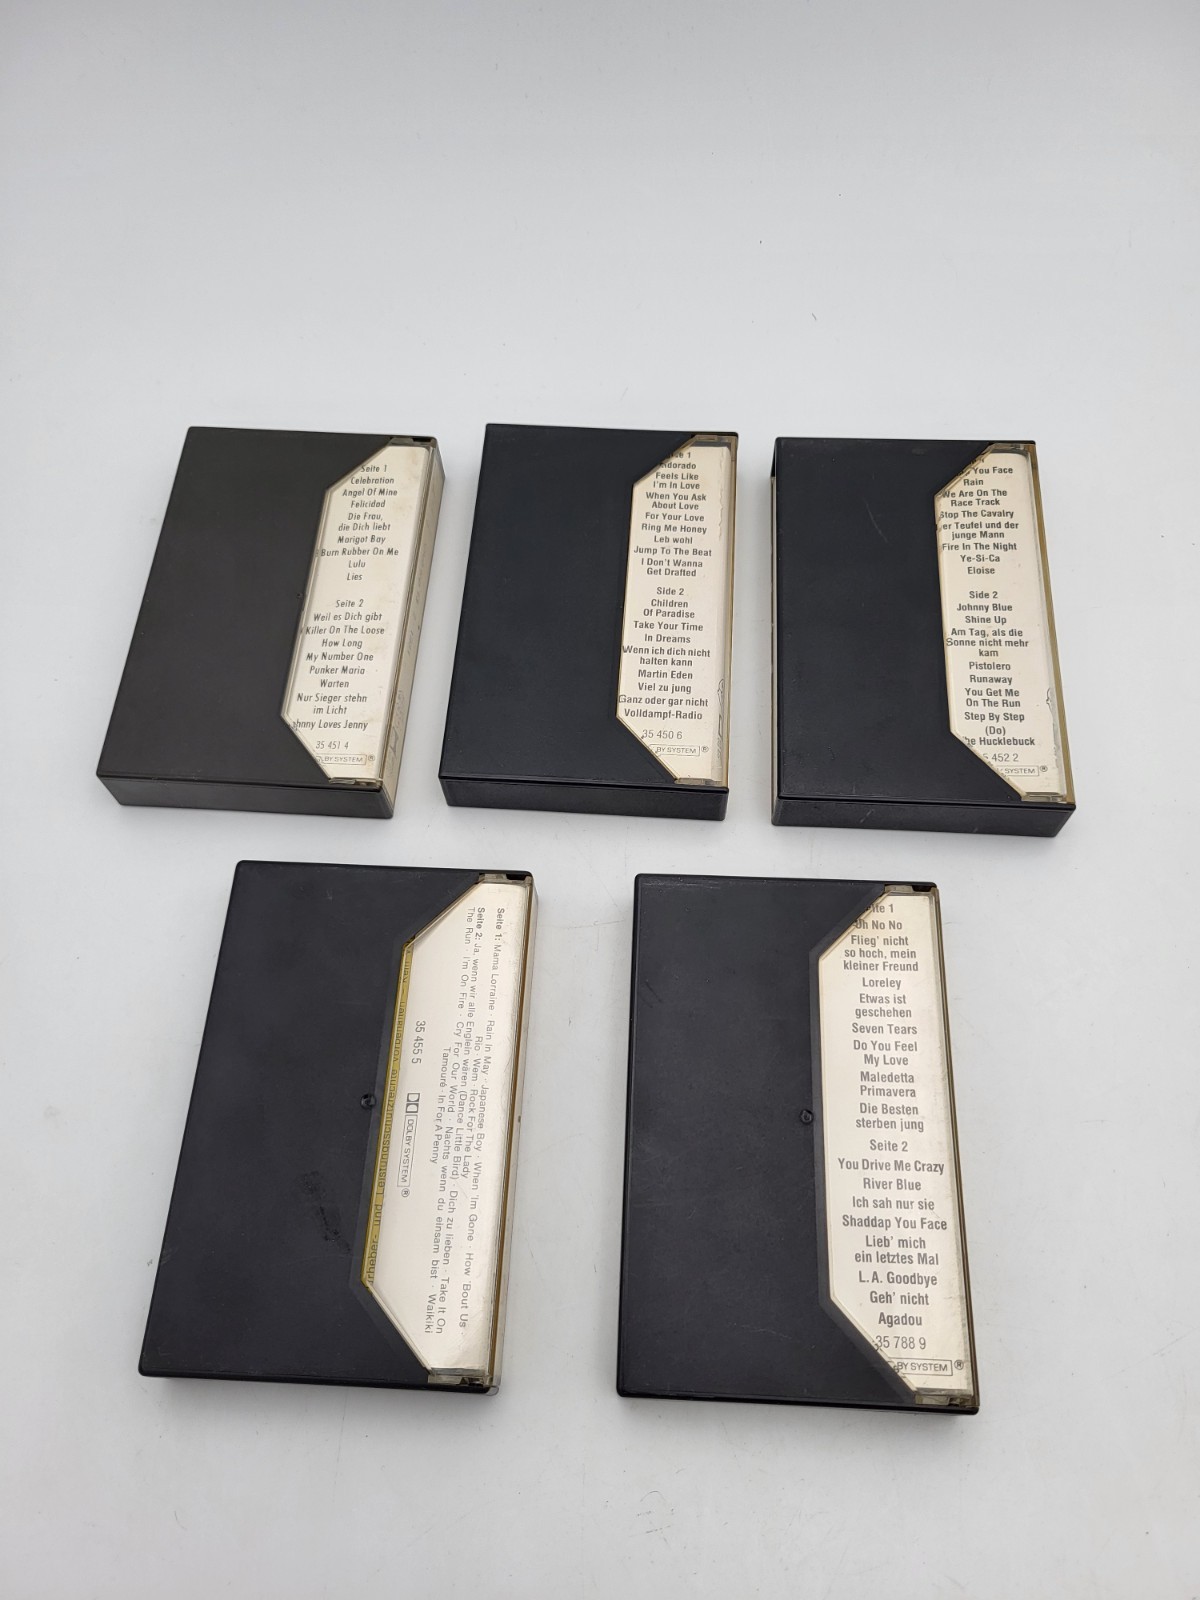 Seite 1
Celebration
Angel Of Mine
Felicidad
Die Frau,
die Dich liebt
Marigot Bay
Burn Rubber On Me
Lulu
Lies
Seite 2
Weil es Dich gibt
Killer On The Loose
How Long
My Number One
Punker Maria
Warten
Nur Sieger stehn
im Licht
hnny Loves Jenny
35 451 4
BY SYSTEM ®
e 1
dorado
Feels Like
I'm In Love
When You Ask
About Love
For Your Love
Ring Me Honey
Leb wohl
Jump To The Beat
I Don't Wanna
Get Drafted
Side 2
Children
Of Paradise
Take Your Time
In Dreams
Wenn ich dich nicht
halten kann
Martin Eden
Viel zu jung
Ganz oder gar nicht
Volldampf-Radio
35 450 6
BY SYSTEM ®
You Face
Rain
We Are On The
Race Track
Stop The Cavalry
er Teufel und der
junge Mann
Fire In The Night
Ye-Si-Ca
Eloise
Side 2
Johnny Blue
Shine Up
Am Tag, als die
Sonne nicht mehr
kam
Pistolero
Runaway
You Get Me
On The Run
Step By Step
(Do)
he Hucklebuck
452 2
SYSTEM ®
Seite 1: Mama Lorraine · Rain In May · Japanese Boy · When 'Im Gone · How 'Bout Us
Rio · Wem · Rock For The Lady
Seite 2: Ja, wenn wir alle Englein wären (Dance Little Bird) · Dich zu lieben · Take It On
The Run · I'm On Fire · Cry For Our World · Nachts wenn du einsam bist · Waikiki
Tamouré · In For A Penny
35 455 5
DOLBY SYSTEM ®
rheber- und Leistungsschutzrechte vorbehalten
ite 1
Uh No No
Flieg' nicht
so hoch, mein
kleiner Freund
Loreley
Etwas ist
geschehen
Seven Tears
Do You Feel
My Love
Maledetta
Primavera
Die Besten
sterben jung
Seite 2
You Drive Me Crazy
River Blue
Ich sah nur sie
Shaddap You Face
Lieb' mich
ein letztes Mal
L.A. Goodbye
Geh' nicht
Agadou
35 788 9
BY SYSTEM ®